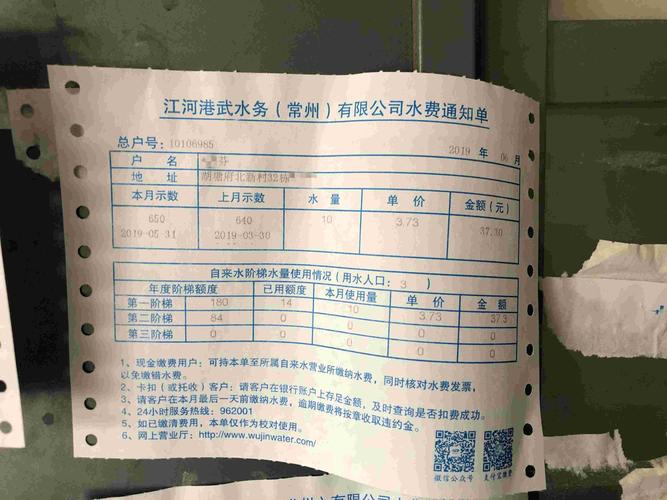 江河港武水务（常州）有限公司水费通知单
总户号：10106985 2019 年 06 月
户 名 芬
地 址 湖塘府北新村32栋
本月示数 上月示数 水 量 单 价 金额（元）
650 640 10 3.73 37.30
2019-05-31 2019-03-30
自来水阶梯水量使用情况（用水人口： 3 ）
年度阶梯额度 已用额度 本月使用量 单 价 金 额
第一阶梯 180 14 10 3.73 37.3
第二阶梯 84 0 0 0 0
第三阶梯 0 0 0 0
1、现金缴费用户：可持本单至所属自来水营业所缴纳水费，同时核对水费发票，
以免缴错水费。
2、卡扣（或托收）客户：请客户在银行账户上存足金额，及时查询是否扣费成功。
3、请客户在本月最后一天前缴纳水费，逾期缴费将按章收取违约金。
4、24小时服务热线：962001
5、如已缴清费用，本单仅作为校对使用。
6、网上营业厅：http://www.wujinwater.com/
微信公众号 支付宝缴费
州）有限公司水费通